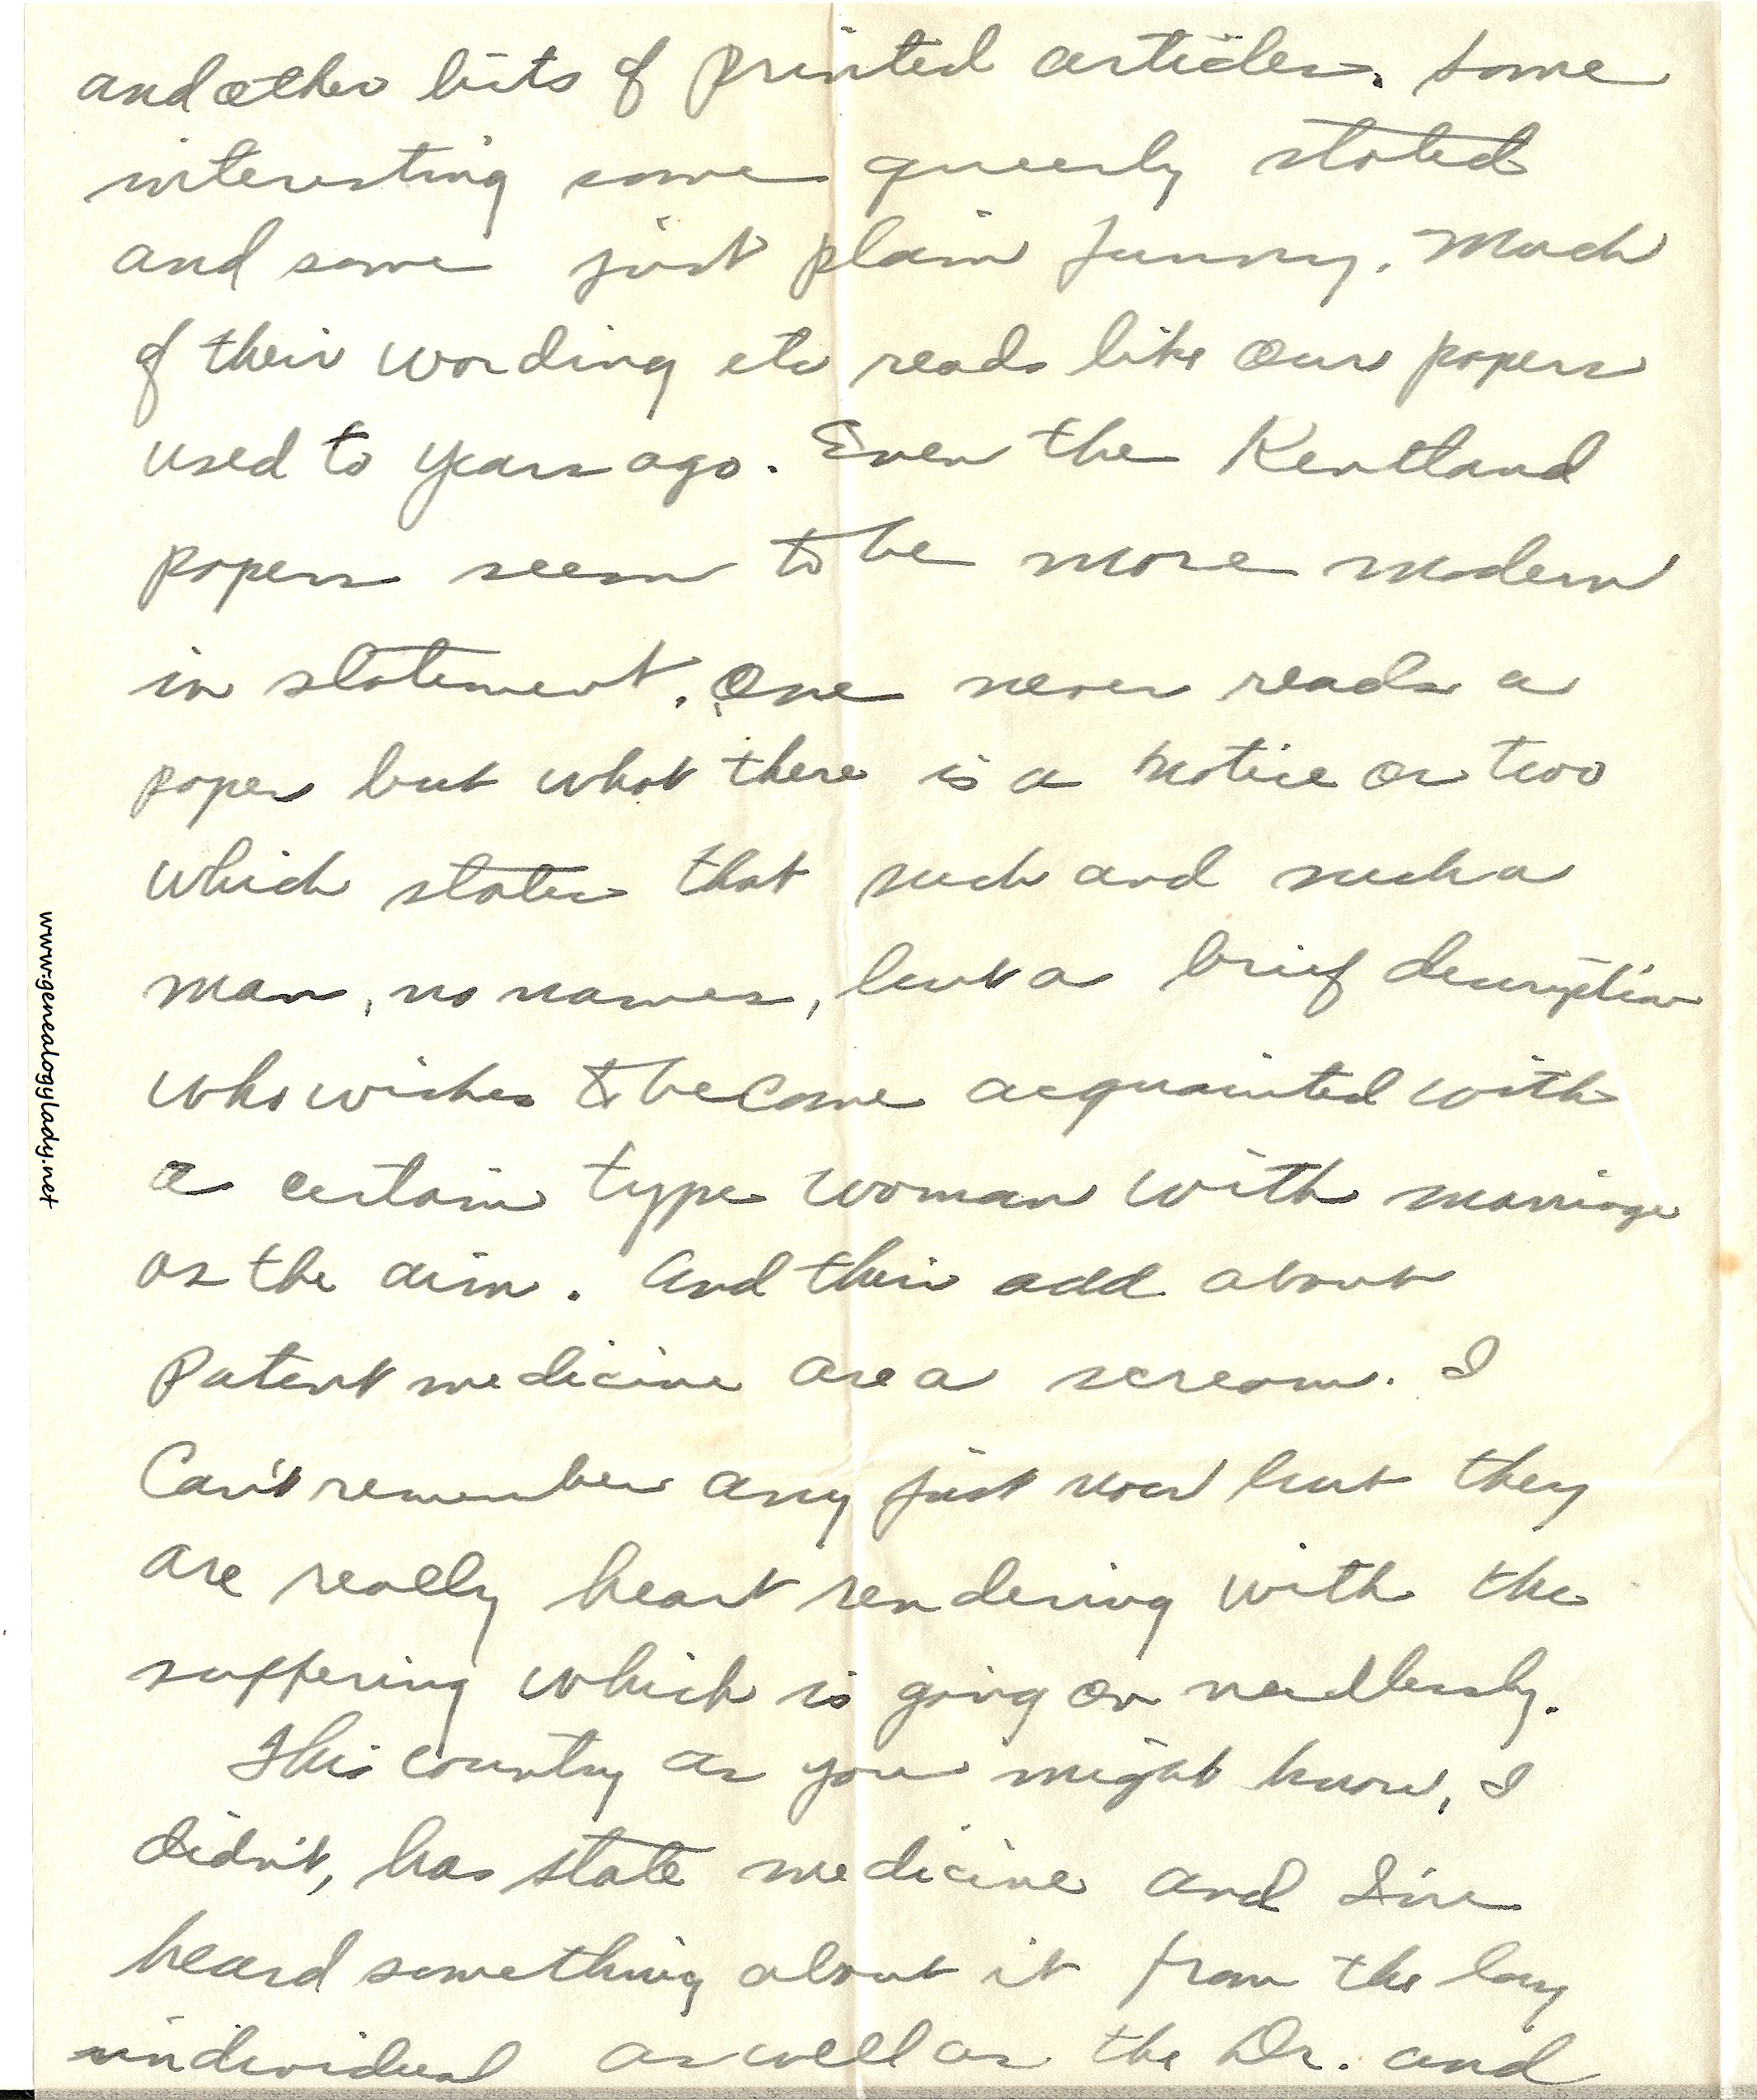 and other bits of printed articles. Some
interesting some queerly stated
and some just plain funny. Much
of their wording etc reads like our papers
used to years ago. Even the Kentland
papers seem to be more modern
in statement. One never reads a
paper but what there is a notice or two
which states that such and such a
man, no names, but a brief description
who wishes to become acquainted with
a certain type woman with marriage
as the aim. And their add about
Patent medicine are a scream. I
Can't remember any just now but they
are really heart rendering with the
suffering which is going on needlessly.
This country as you might know, I
didn't, has state medicine and I've
heard something about it from the lay
individual as well as the Dr. and
www.genealogylady.net